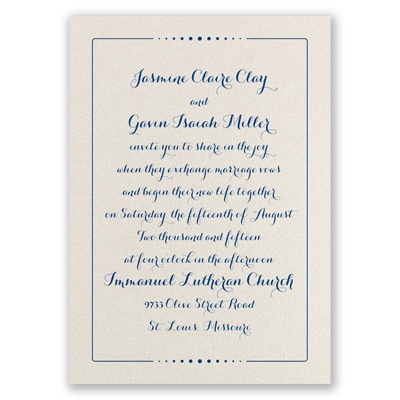 Jasmine Claire Clay
and
Gavin Isaiah Miller
invite you to share in the joy
when they exchange marriage vows
and begin their new life together
on Saturday, the fifteenth of August
Two thousand and fifteen
at four o'clock in the afternoon
Immanuel Lutheran Church
9733 Olive Street Road
St. Louis, Missouri